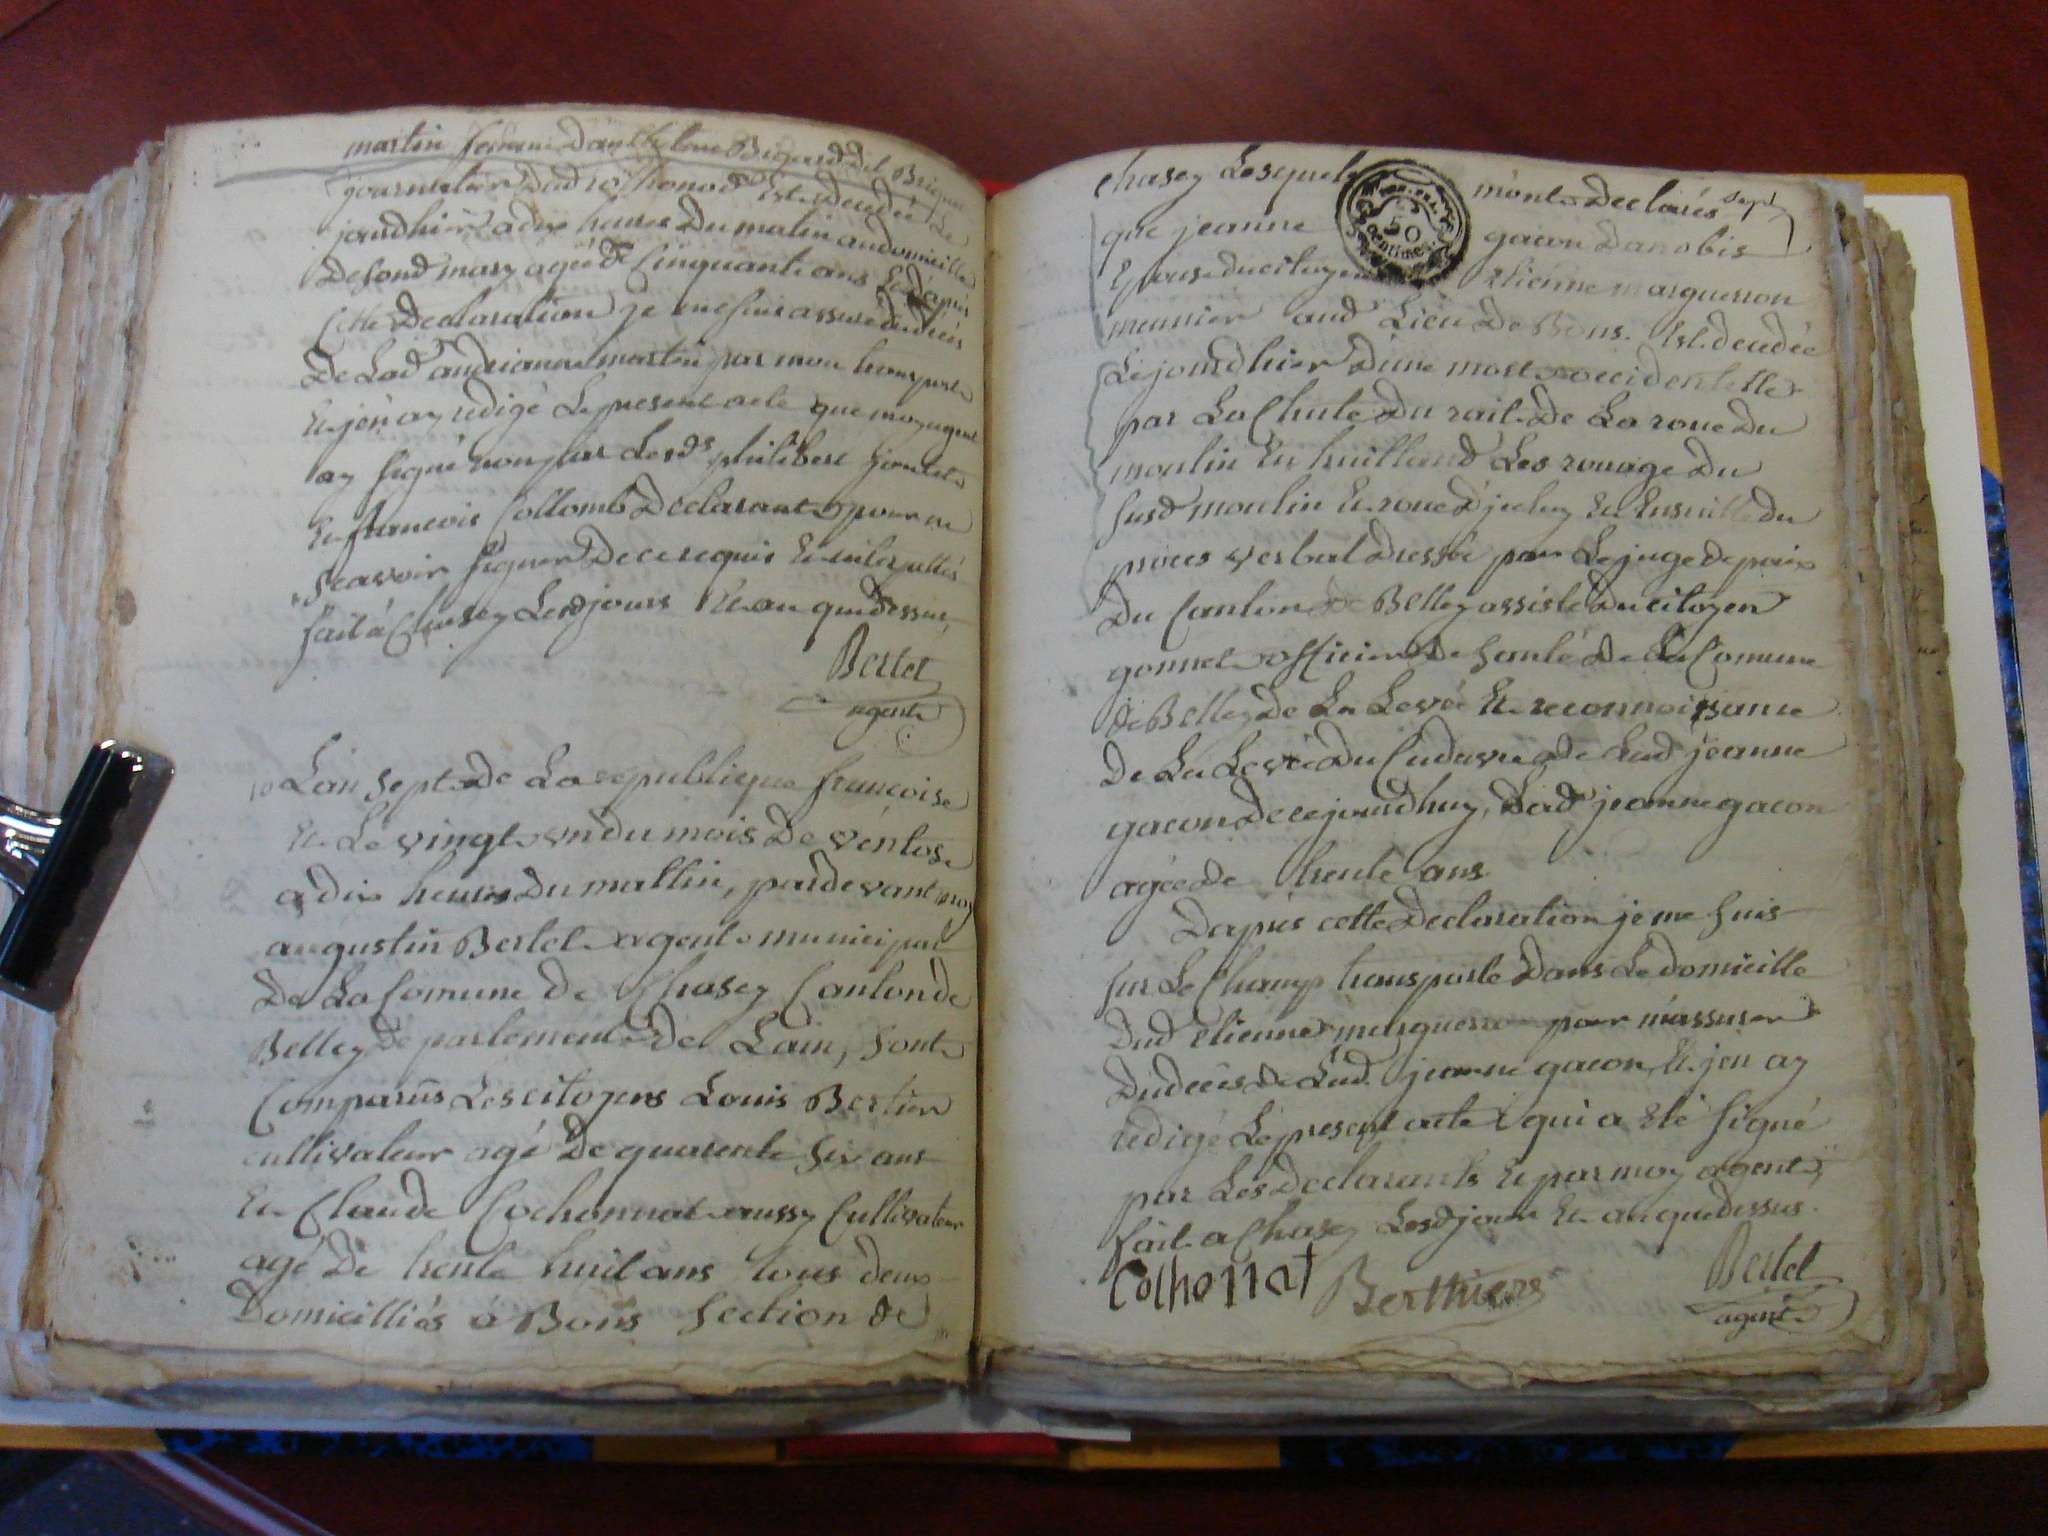 martin femme Danthelme Bigard dit Brique
journalier Dud rochonod Est Decedée Le
jourdhier a dix heures Du matin audomicille
De sond mary agée de Cinquante ans Et dapres
Cette Declaration je me suis assuré du deces
De Lad andrianne martin par mon transport
Et jen ay redigé Le present acte que moy agent
ay signé non par Lesds philibert
Et francois Collomb Declarants pour ne
scavoir signer De ce requis Et interpellés
fait a Chasey Lesd jours Et an que dessus,
Bertet
agent
10 Lan sept De La republique francoise
Et Le vingt un du mois De ventose
a dix heures Du mattin, pardevant moy
augustin Bertet agent municipal
De La Comune de Chasey Canton de
Belley departement De Lain, sont
Comparus Les citoyens Louis Bertier
cultivateur agé De quarente six ans
Et Claude Cochonnat aussy Cultivateur
agé De trente huit ans tous deux
Domicilliés a Bons section de
Chasey Lesquels mont Declarés sept
50
centimes
que jeanne gacon Danobis
Epouse du citoyen Etienne marguerron
meunier aud Lieu De Bons. Est decedée
Le jourdhier Dune mort accidentelle
par La Chute Du rait De La roue Du
moulin En huilland Les rouage Du
susd moulin Et roue Djceluy Et Ensuitte du
proces verbal dressée par Le juge de paix
Du Canton de Belley assisté Du citoyen
gonnet officier De santé De La Comune
de Belley De La Levée Et reconnoissance
De La Levée Du Cadavre de Lad jeanne
gacon De cejourdhuy, Lad jeanne gacon
agée de trente ans
Dapres cette Declaration je me suis
sur Le Champ transporté Dans Le domicille
Dud Etienne marguerron pour massurer
Du deces de Lad. jeanne gacon Et jen ay
redigé Le present acte qui a Eté signé
par Les Declarants Et par moy agent,
fait a Chasey Lesd jour Et an que dessus.
Cothonat Berthiers Bertet
agent